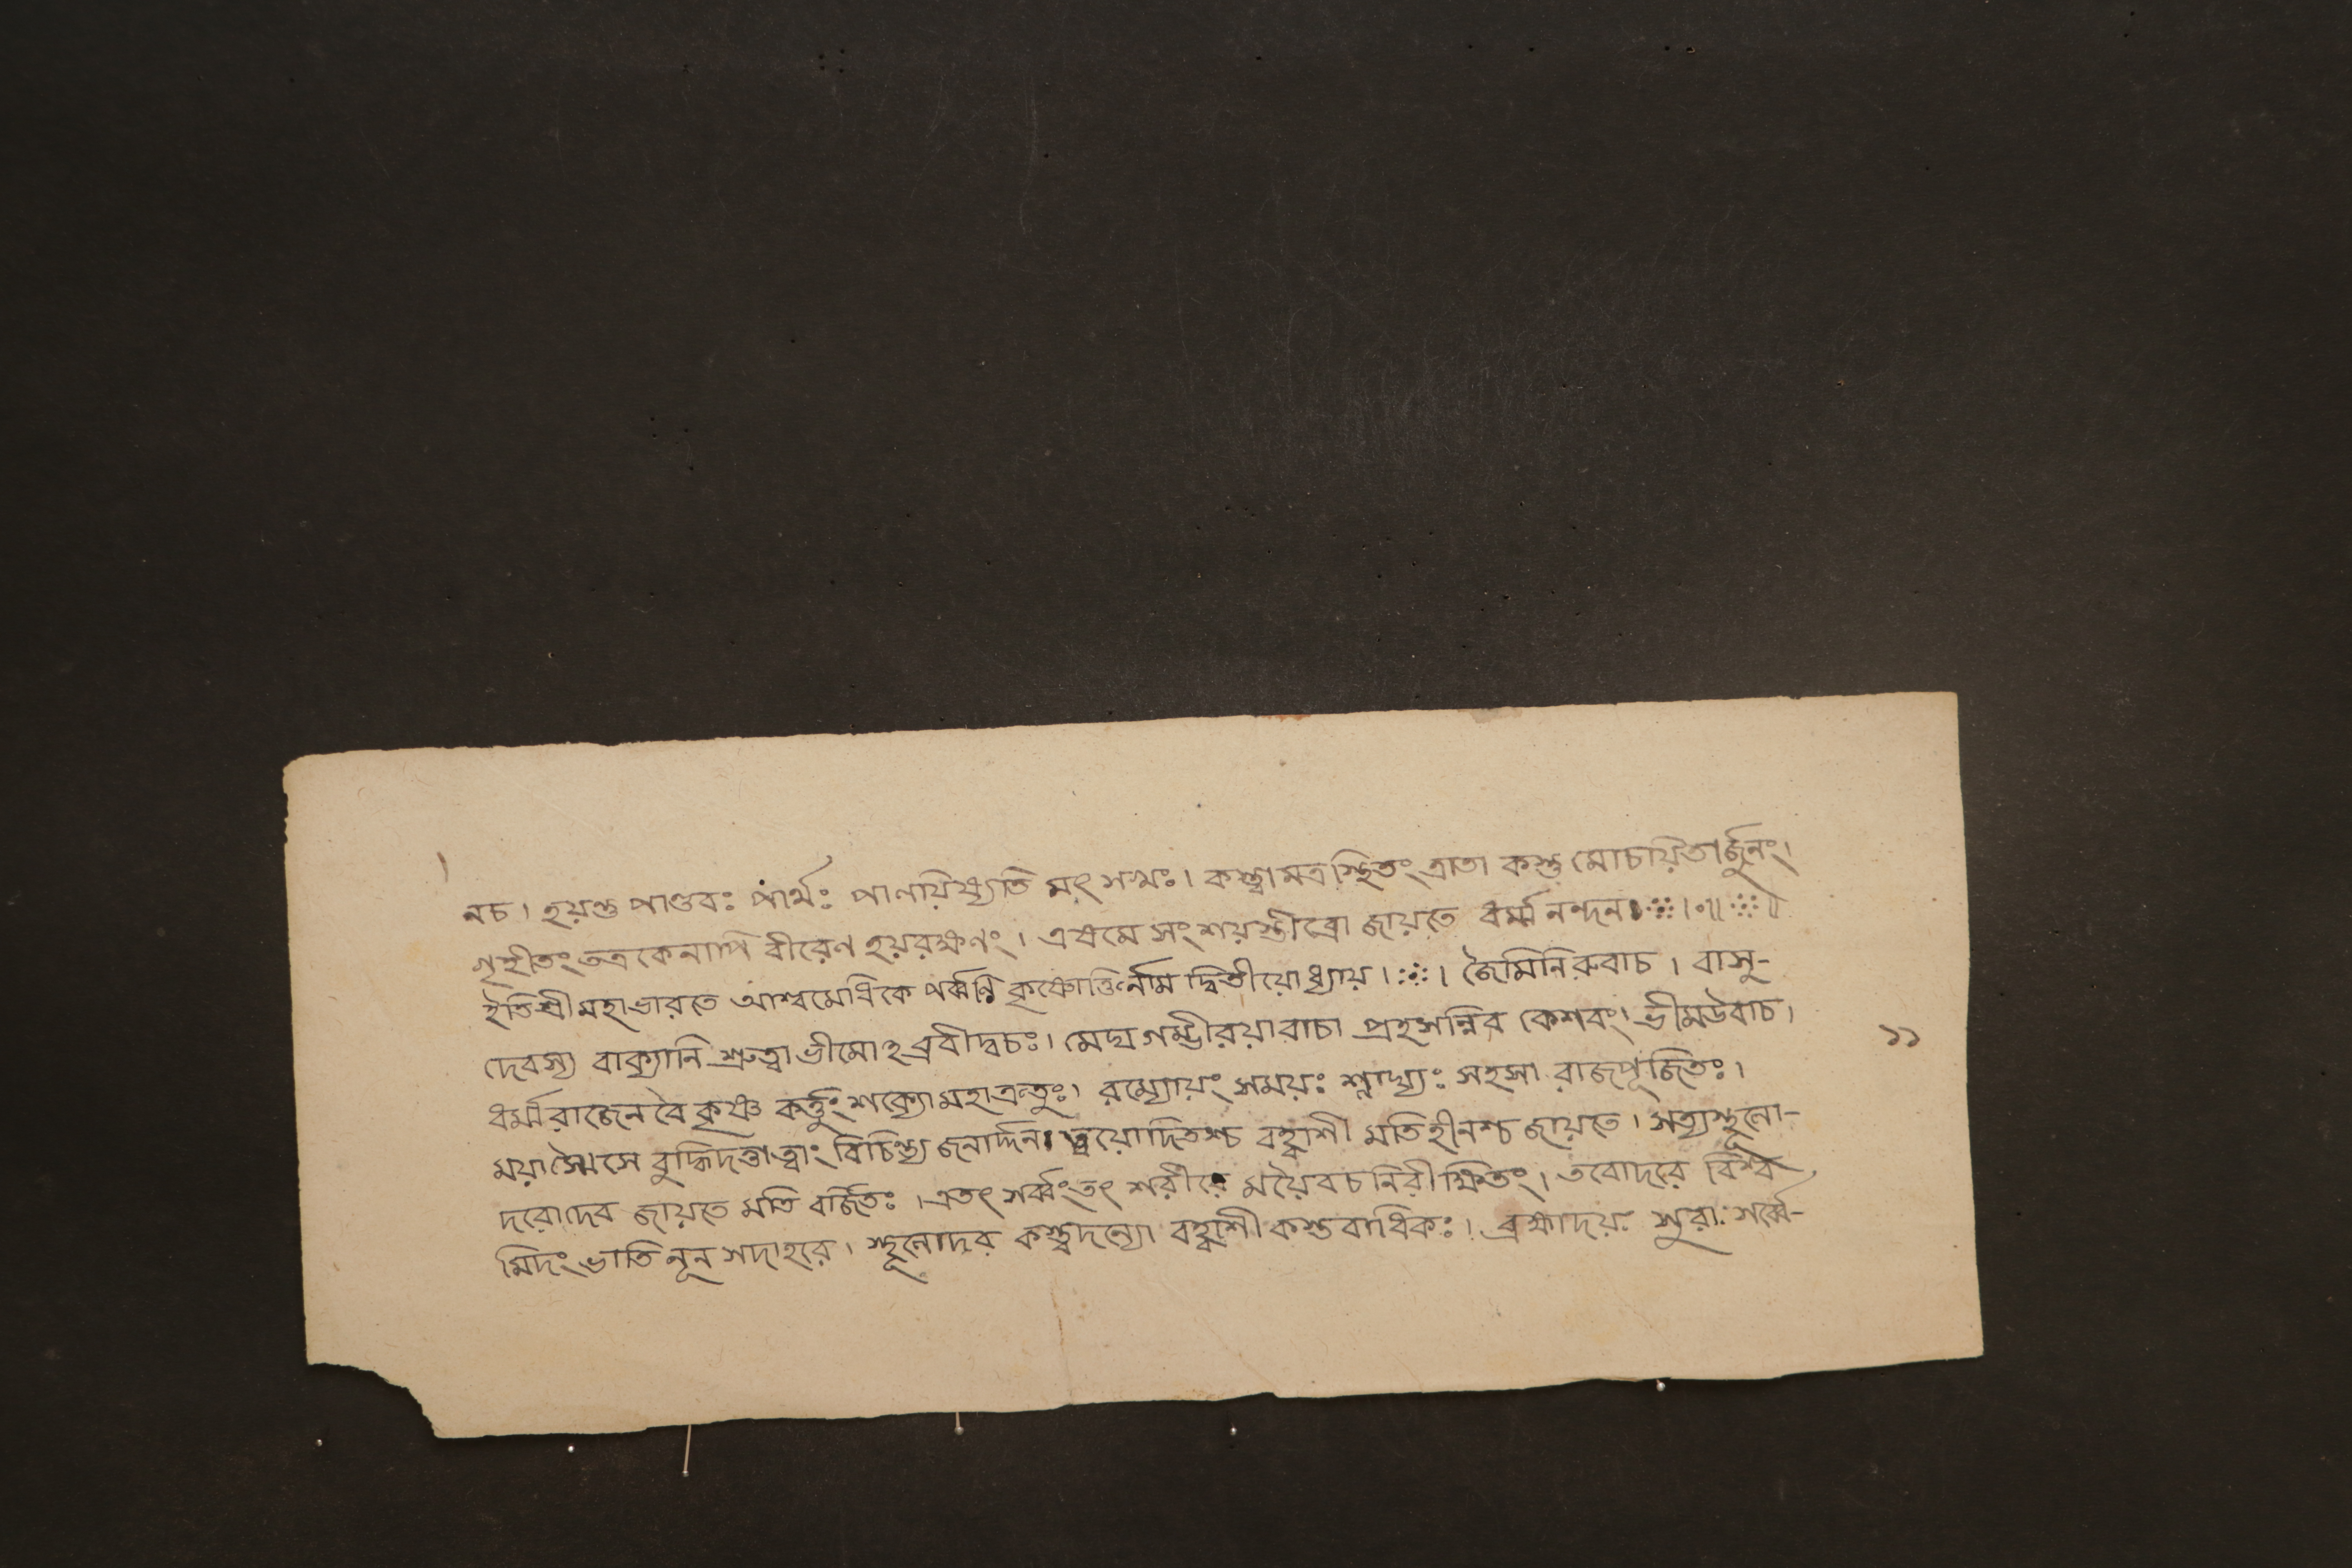 নচ। হয়স্তু পাণ্ডবঃ পার্থঃ পালয়িষ্যতি মৎ সমঃ। কস্ত্বামত্রস্থিতং ত্রাতা কস্তু মোচায়িতার্জুনং।
গৃহীতং তত্র কেনাপি বীরেণ হয়রক্ষণং। এষমে সংশয়স্তীব্রো জায়তে ধর্ম্মনন্দনঃ
ইতি শ্রীমহাভারতে আশ্বমেধিকে পর্ব্বণি কৃষ্ণোক্তির্নাম দ্বিতীয়োধ্যায়। জৈমিনিরুবাচ। বাসু-
দেবস্য বাক্যানি শ্রুত্বা ভীমোঽব্রবীদ্বচঃ। মেঘ গম্ভীরয়া বাচা প্রহসন্নিব কেশবং। ভীমউবাচ।
১১
ধর্ম্মরাজেন বৈ কৃষ্ণ কর্ত্তুং শক্যো মহাক্রতুঃ। রম্যোয়ং সময়ঃ শ্লাঘ্যঃ সহসা রাজপূজিতঃ।
ময়া সে বুদ্ধিদত্তাত্বাং বিচিন্ত্য জনার্দ্দনঃ ত্বয়োদিতশ্চ বহ্বাশী মতিহীনশ্চ জায়তে। সত্যস্থূলো-
দরোদেব জায়তে মতি বর্জিতঃ। এতৎ সর্ব্বংতৎ শরীরে ময়ৈবচ নিরীক্ষিতং। তবোদরে বিশ্ব
মিদং ভাতি নূন সদাহরে। স্থূলোদর কস্ত্বদন্যো বহ্বাশী কস্তবাধিকঃ। ব্রহ্মাদয়ঃ সুরাঃ সর্ব্বে-